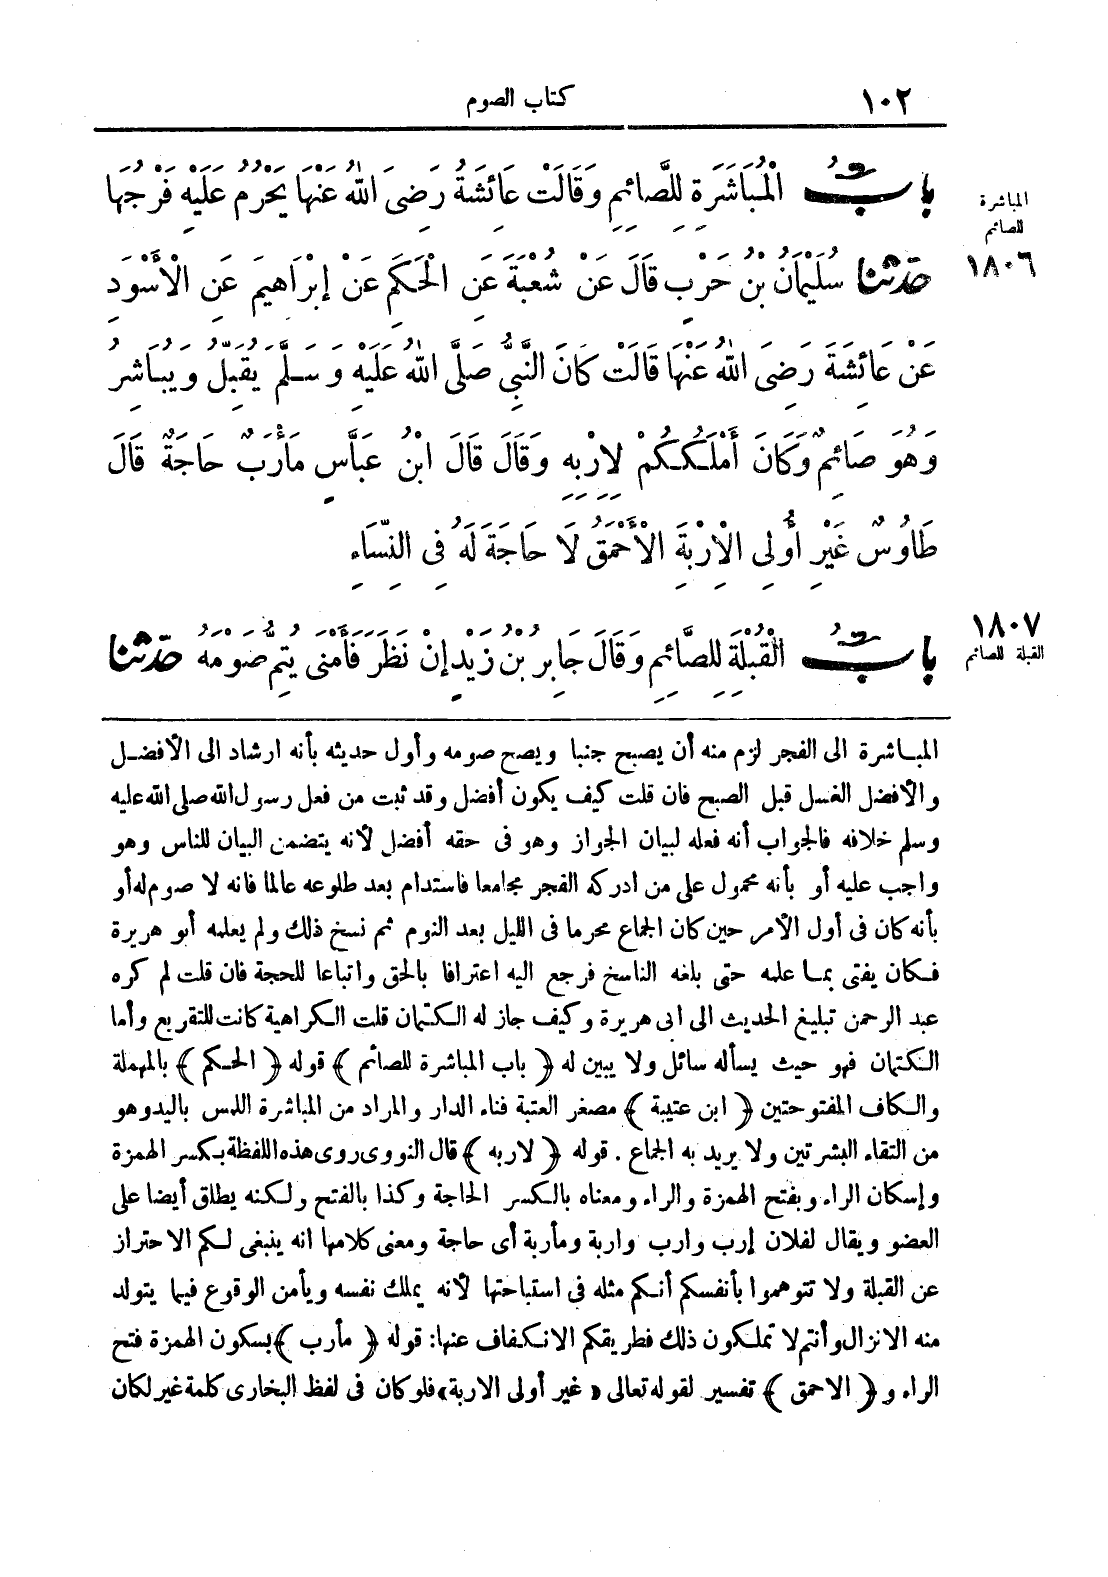 ١٠٢ كتاب الصوم
المباشرة
للصائم
باب الْمُبَاشَرَةِ لِلصَّائِمِ وَقَالَتْ عَائِشَةُ رَضِىَ اللّٰهُ عَنْهَا يَحْرُمُ عَلَيْهِ فَرْجُهَا
١٨٠٦
حَدَّثَنَا سُلَيْمَانُ بْنُ حَرْبٍ قَالَ عَنْ شُعْبَةَ عَنِ الْحَكَمِ عَنْ إِبْرَاهِيمَ عَنِ الْأَسْوَدِ
عَنْ عَائِشَةَ رَضِىَ اللّٰهُ عَنْهَا قَالَتْ كَانَ النَّبِىُّ صَلَّى اللّٰهُ عَلَيْهِ وَسَلَّمَ يُقَبِّلُ وَيُبَاشِرُ
وَهُوَ صَائِمٌ وَكَانَ أَمْلَكَكُمْ لِإِرْبِهِ وَقَالَ قَالَ ابْنُ عَبَّاسٍ مَأْرَبٌ حَاجَةٌ قَالَ
طَاوُسٌ غَيْرِ أُولِى الْإِرْبَةِ الْأَحْمَقُ لَا حَاجَةَ لَهُ فِى النِّسَاءِ
١٨٠٧
القبلة للصائم
باب الْقُبْلَةِ لِلصَّائِمِ وَقَالَ جَابِرُ بْنُ زَيْدٍ إِنْ نَظَرَ فَأَمْنَى يُتِمُّ صَوْمَهُ حَدَّثَنَا
المباشرة الى الفجر لزم منه أن يصبح جنبا ويصح صومه وأول حديثه بأنه ارشاد الى الأفضل
والأفضل الغسل قبل الصبح فان قلت كيف يكون أفضل وقد ثبت من فعل رسول الله صلى الله عليه
وسلم خلافه فالجواب أنه فعله لبيان الجواز وهو فى حقه أفضل لأنه يتضمن البيان للناس وهو
واجب عليه أو بأنه محمول على من ادركه الفجر مجامعا فاستدام بعد طلوعه عالما فانه لا صوم له أو
بأنه كان فى أول الأمر حين كان الجماع محرما فى الليل بعد النوم ثم نسخ ذلك ولم يعلمه أبو هريرة
فكان يفتى بما علمه حتى بلغه الناسخ فرجع اليه اعترافا بالحق واتباعا للحجة فان قلت لم كره
عبد الرحمن تبليغ الحديث الى ابى هريرة وكيف جاز له الكتمان قلت الكراهية كانت للتقريع وأما
الكتمان فهو حيث يسأله سائل ولا يبين له ﴿ باب المباشرة للصائم ﴾ قوله ﴿ الحكم ﴾ بالمهملة
والكاف المفتوحتين ﴿ ابن عتيبة ﴾ مصغر العتبة فناء الدار والمراد من المباشرة اللمس باليد وهو
من التقاء البشرتين ولا يريد به الجماع . قوله ﴿ لاربه ﴾ قال النووى روى هذه اللفظة بكسر الهمزة
وإسكان الراء وبفتح الهمزة والراء ومعناه بالكسر الحاجة وكذا بالفتح ولكنه يطلق أيضا على
العضو ويقال لفلان إرب وارب واربة ومأربة أى حاجة ومعنى كلامها انه ينبغى لكم الاحتراز
عن القبلة ولا تتوهموا بأنفسكم أنكم مثله فى استباحتها لأنه يملك نفسه ويأمن الوقوع فيما يتولد
منه الانزال وأنتم لا تملكون ذلك فطريقكم الانكفاف عنها: قوله ﴿ مأرب ﴾ بسكون الهمزة فتح
الراء و ﴿ الاحمق ﴾ تفسير لقوله تعالى « غير أولى الاربة» فلو كان فى لفظ البخارى كلمة غير لكان